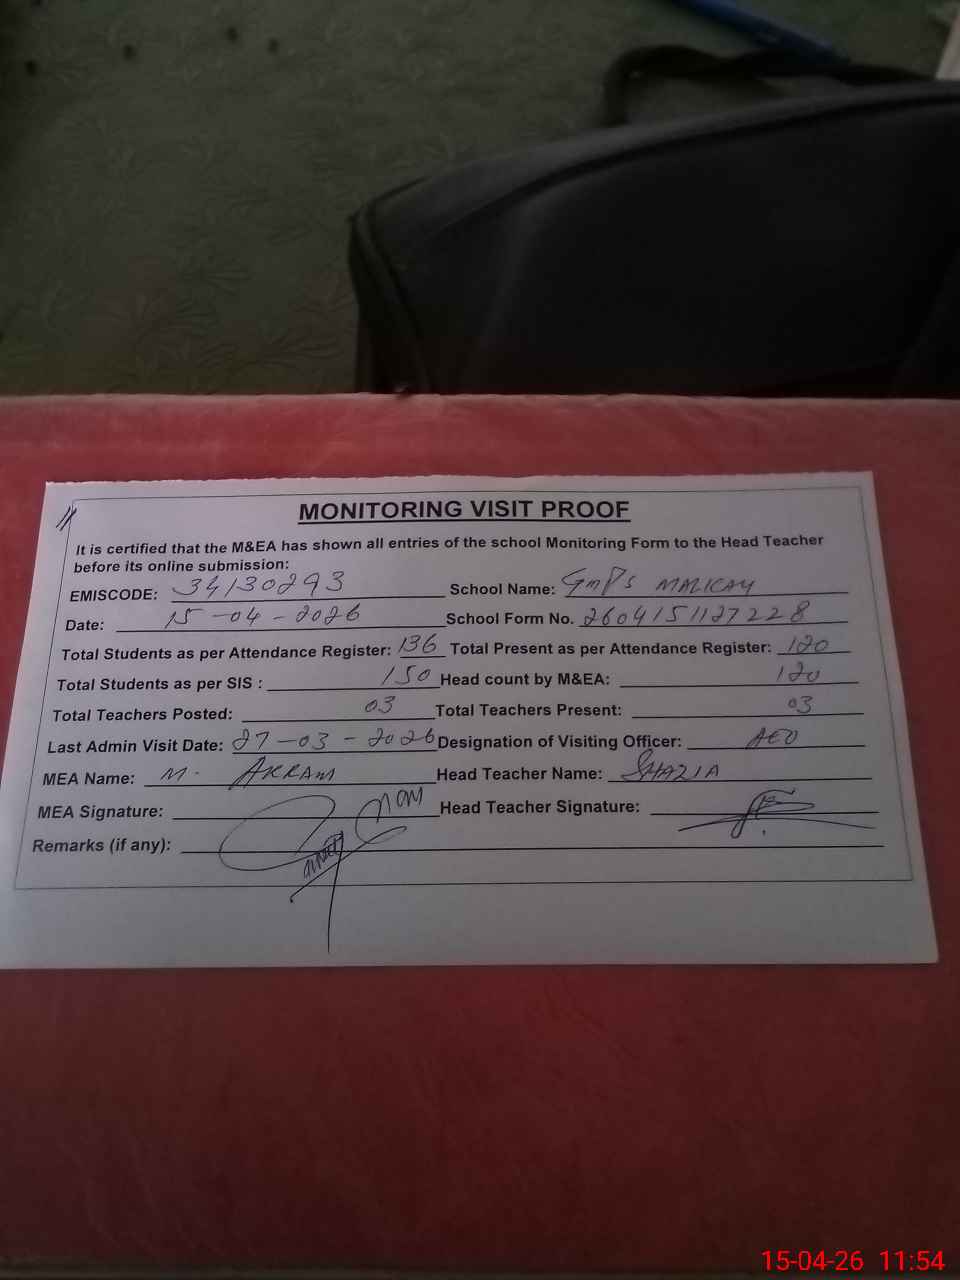 MONITORING VISIT PROOF
It is certified that the M&EA has shown all entries of the school Monitoring Form to the Head Teacher
before its online submission:
EMISCODE: 34130293 School Name: GMPS MALIKAY
Date: 15-04-2026 School Form No. 2604151127228
Total Students as per Attendance Register: 136 Total Present as per Attendance Register: 120
Total Students as per SIS : 150 Head count by M&EA: 120
Total Teachers Posted: 03 Total Teachers Present: 03
Last Admin Visit Date: 27-03-2026 Designation of Visiting Officer: AEO
MEA Name: M. AKRAM Head Teacher Name: SHAZIA
MEA Signature: Head Teacher Signature:
Remarks (if any):
15-04-26 11:54